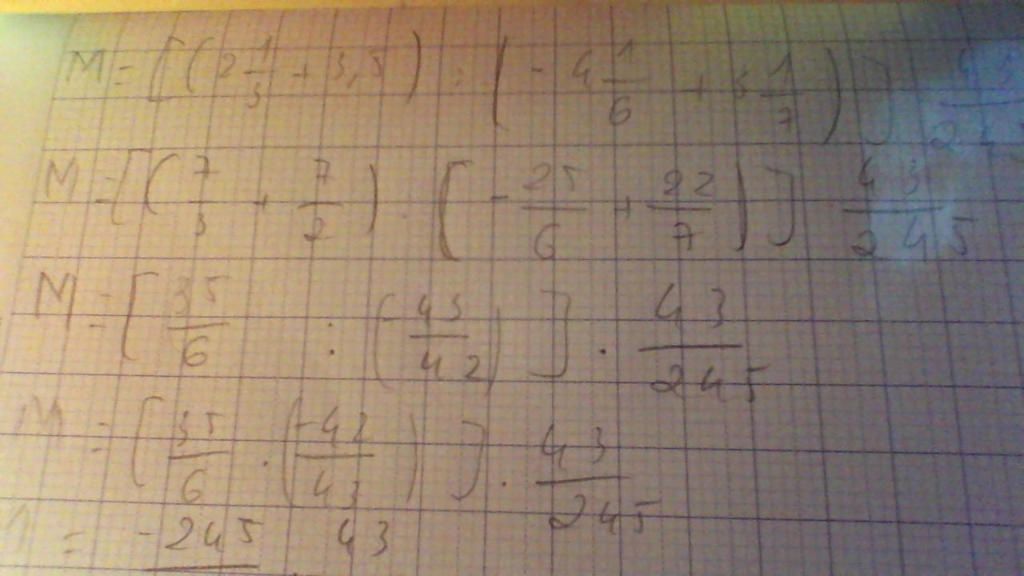 M = [(2 1/3 + 3,5) : (-4 1/6 + 3 1/7)] 43/245
M = [(7/3 + 7/2) : (-25/6 + 22/7)] 43/245
M = [35/6 : (-43/42)] · 43/245
M = [35/6 · (-42/43)] · 43/245
= -245 43